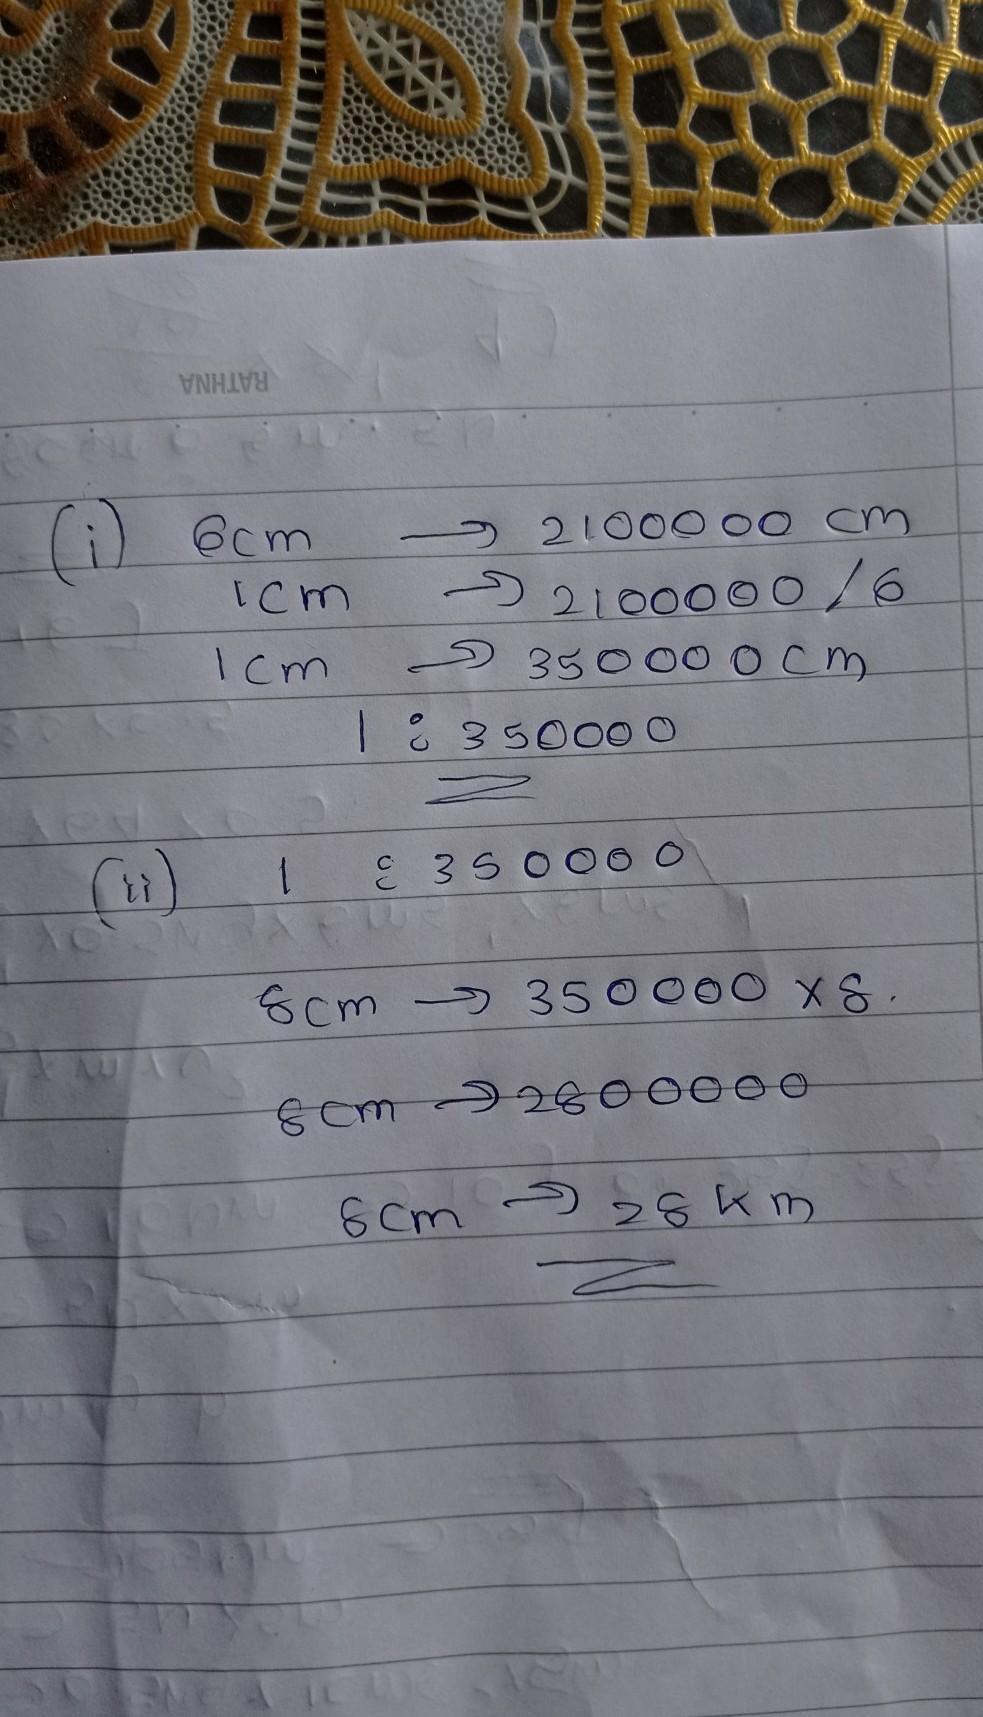 RATHNA
(i) 6cm → 2100000 cm
1cm → 2100000 / 6
1cm → 350000cm
1 : 350000
(ii) 1 : 350000
8cm → 350000 x 8.
8cm → 2800000
8cm → 28 km